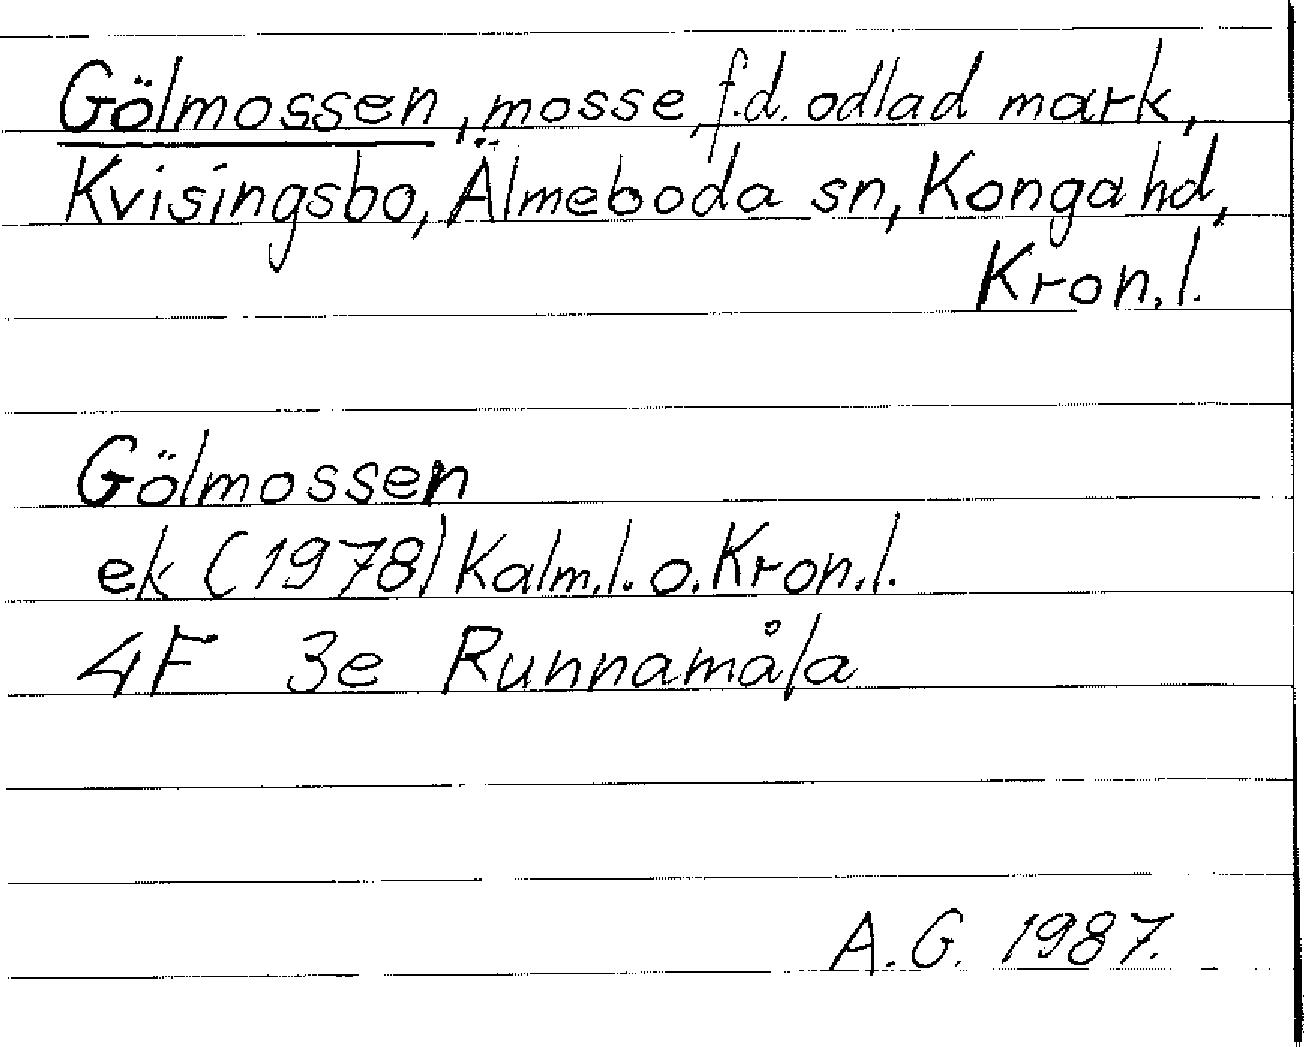 Gölmossen, mosse, f.d. odlad mark,
Kvisingsbo, Älmeboda sn, Konga hd,
Kron.l.
Gölmossen
ek (1978) Kalm.l. o. Kron.l.
4F 3e Runnamåla
A.G. 1987.